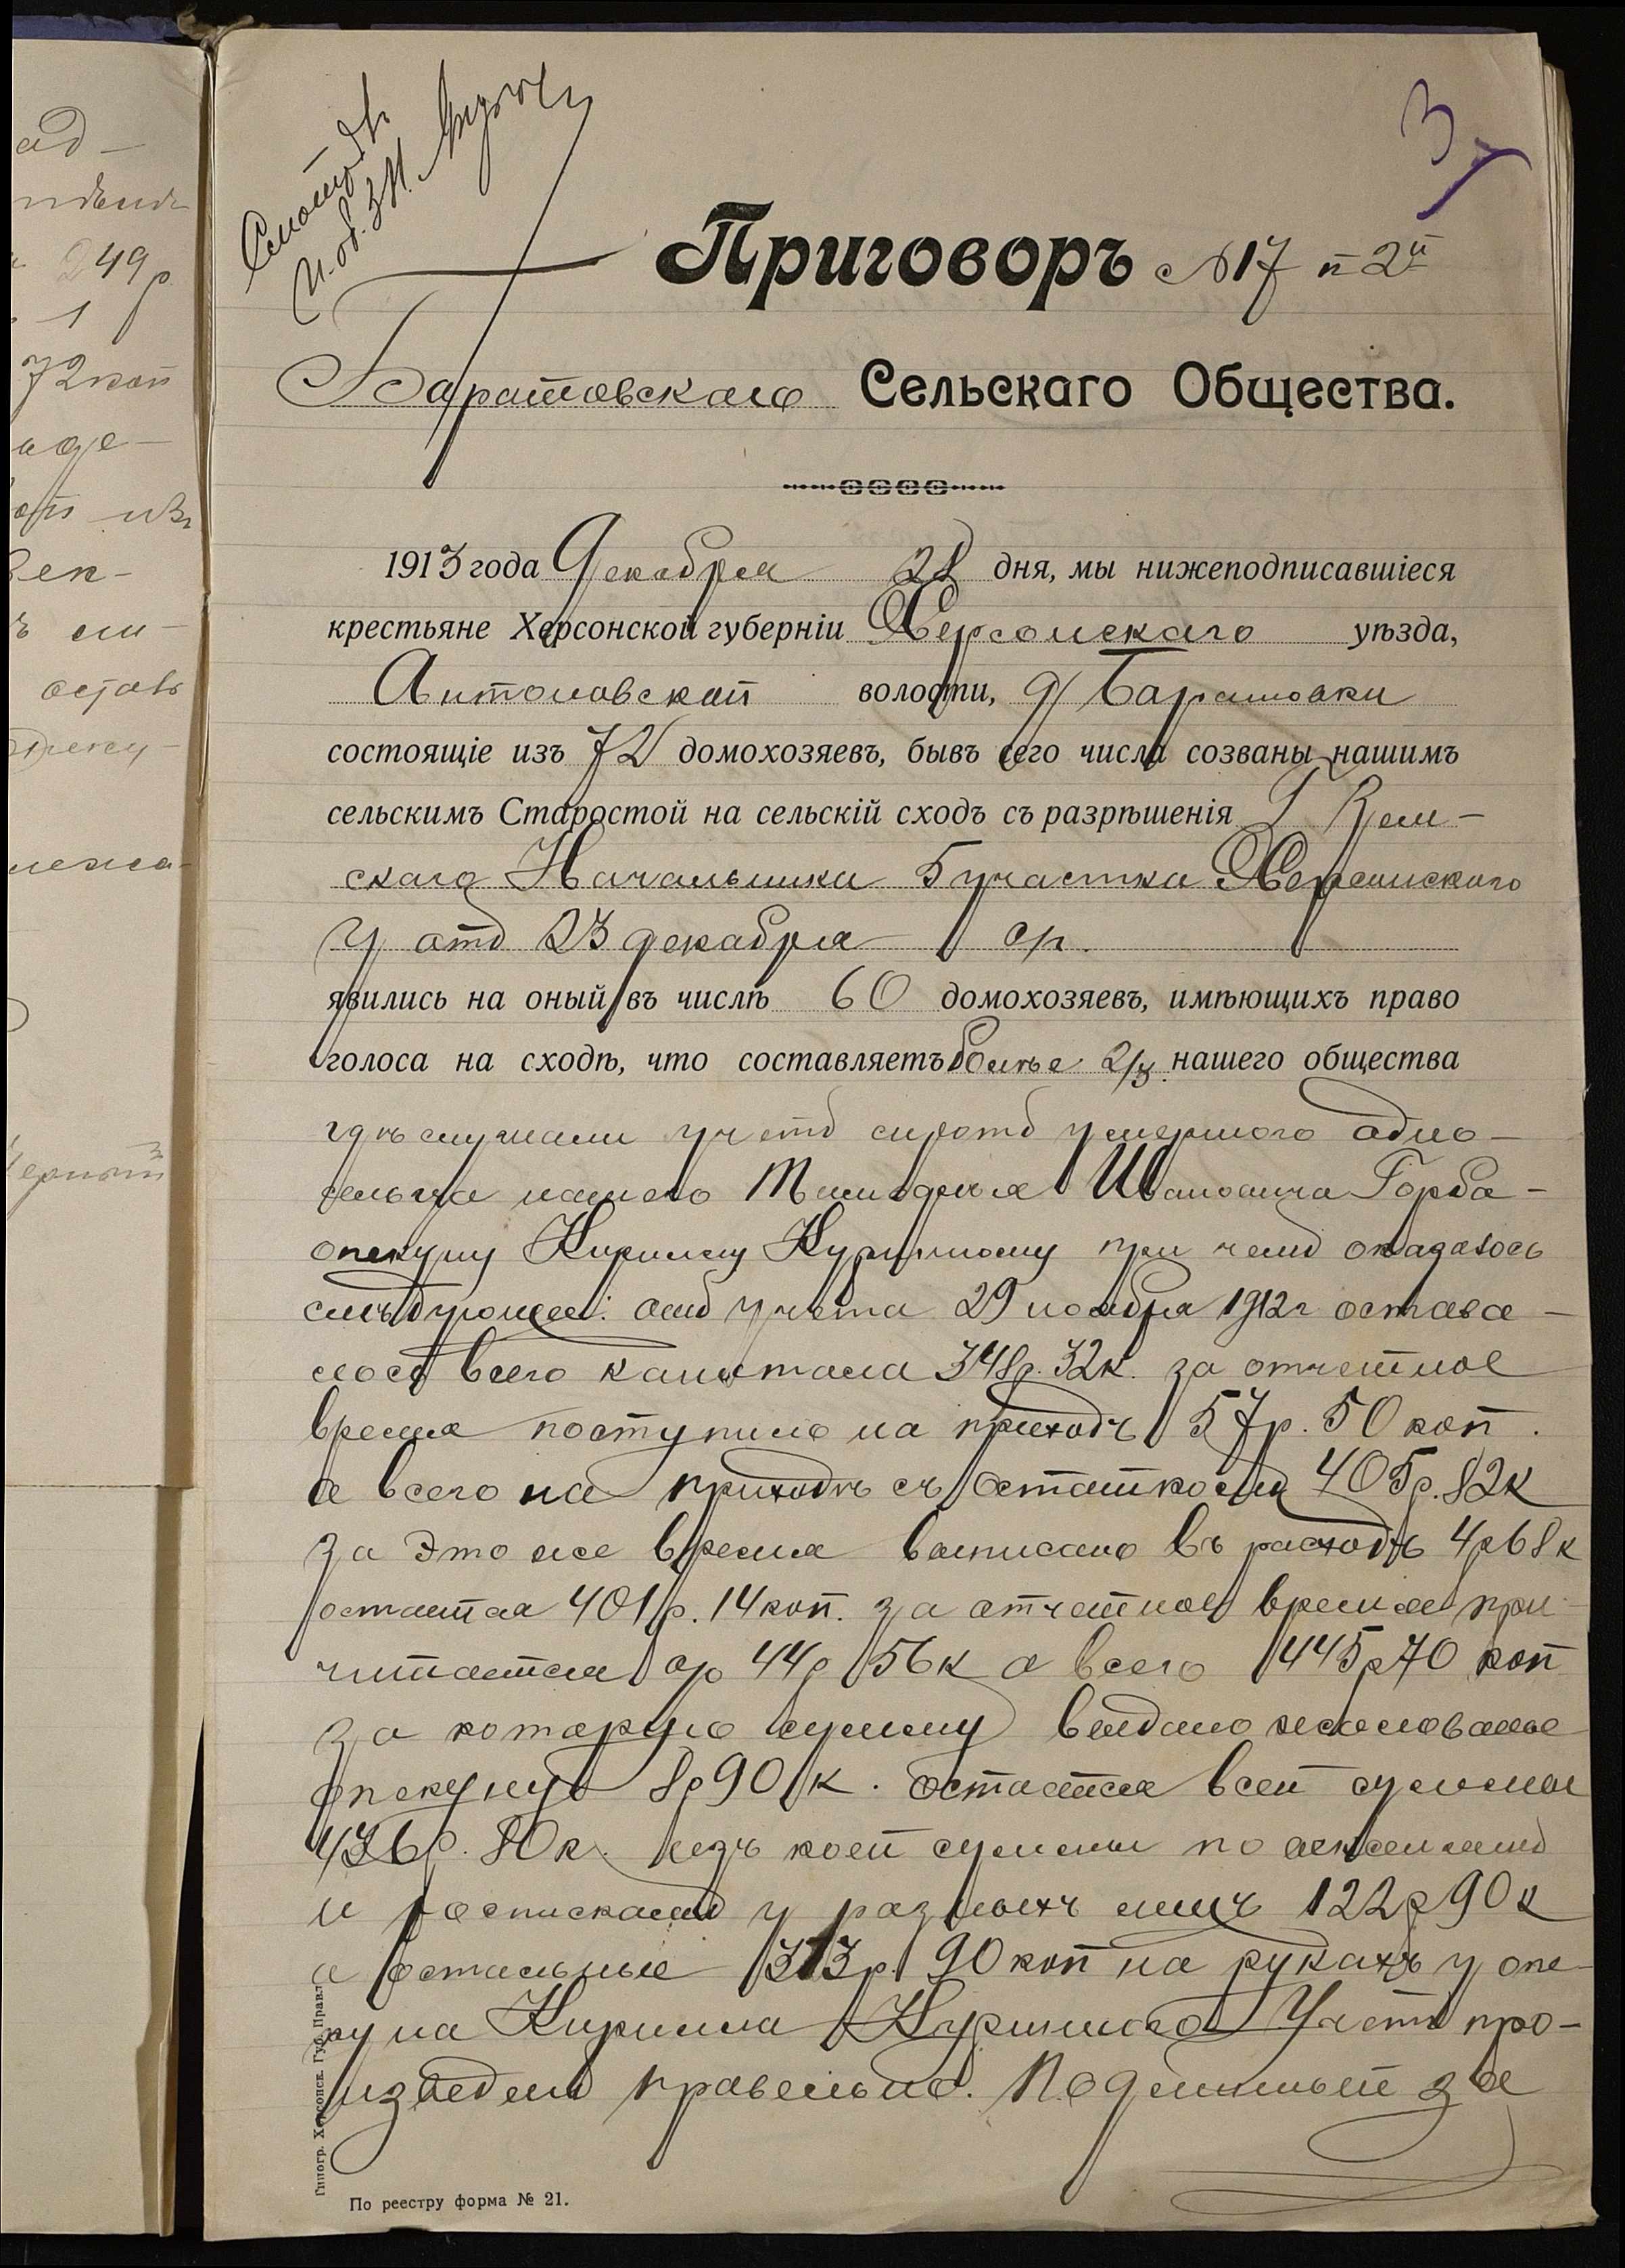 ад-
249р
1
72 коп
из
ост
3
Смотрѣлъ
И. об. З.Н.
Приговоръ №17 п 2й
Баратовскаго Сельскаго Общества.
1913 года Декабря 28 дня, мы нижеподписавшіеся
крестьяне Херсонской губерніи Херсонскаго уѣзда,
Антоновской волости, д. Баратовки
состоящіе изъ 72 домохозяевъ, бывъ сего числа созваны нашимъ
сельскимъ Старостой на сельскій сходъ съ разрѣшенія Г Зем-
скаго Начальника 5 участка Херсонскаго
у отъ 23 декабря с/г.
явились на оный въ числѣ 60 домохозяевъ, имѣющихъ право
голоса на сходѣ, что составляетъ болѣе 2/3 нашего общества
гдѣ слушали учетъ сиротъ умершого одно-
сельца нашего Тимофея Ивановича Горба-
опекуну Кирилу при чемъ оказалось
слѣдующее: отъ учета 29 ноября 1912 г остава-
лось всего капитала 348р. 32к. за отчетное
время поступило на приходъ 57р. 50 коп.
а всего на приходѣ съ остаткомъ 405р. 82к
за это же время выписано въ расходъ 4р 68к
остается 401р. 14 коп. за отчетное время при-
читается % 44р 56к а всего 445р 70 коп
за которую сумму выдано жалованье
опекуну 8р 90к. остается всей суммы
436р. 80к. изъ коей суммы по векселямъ
и роспискамъ у разныхъ лицъ 122р 90к
а остальные 313р. 90 коп на рукахъ у опе-
куна Кирилла Учетъ про-
изведенъ правельно. Подлинный за
Типогр. Херсонск. Губ. Правл.
По реестру форма № 21.